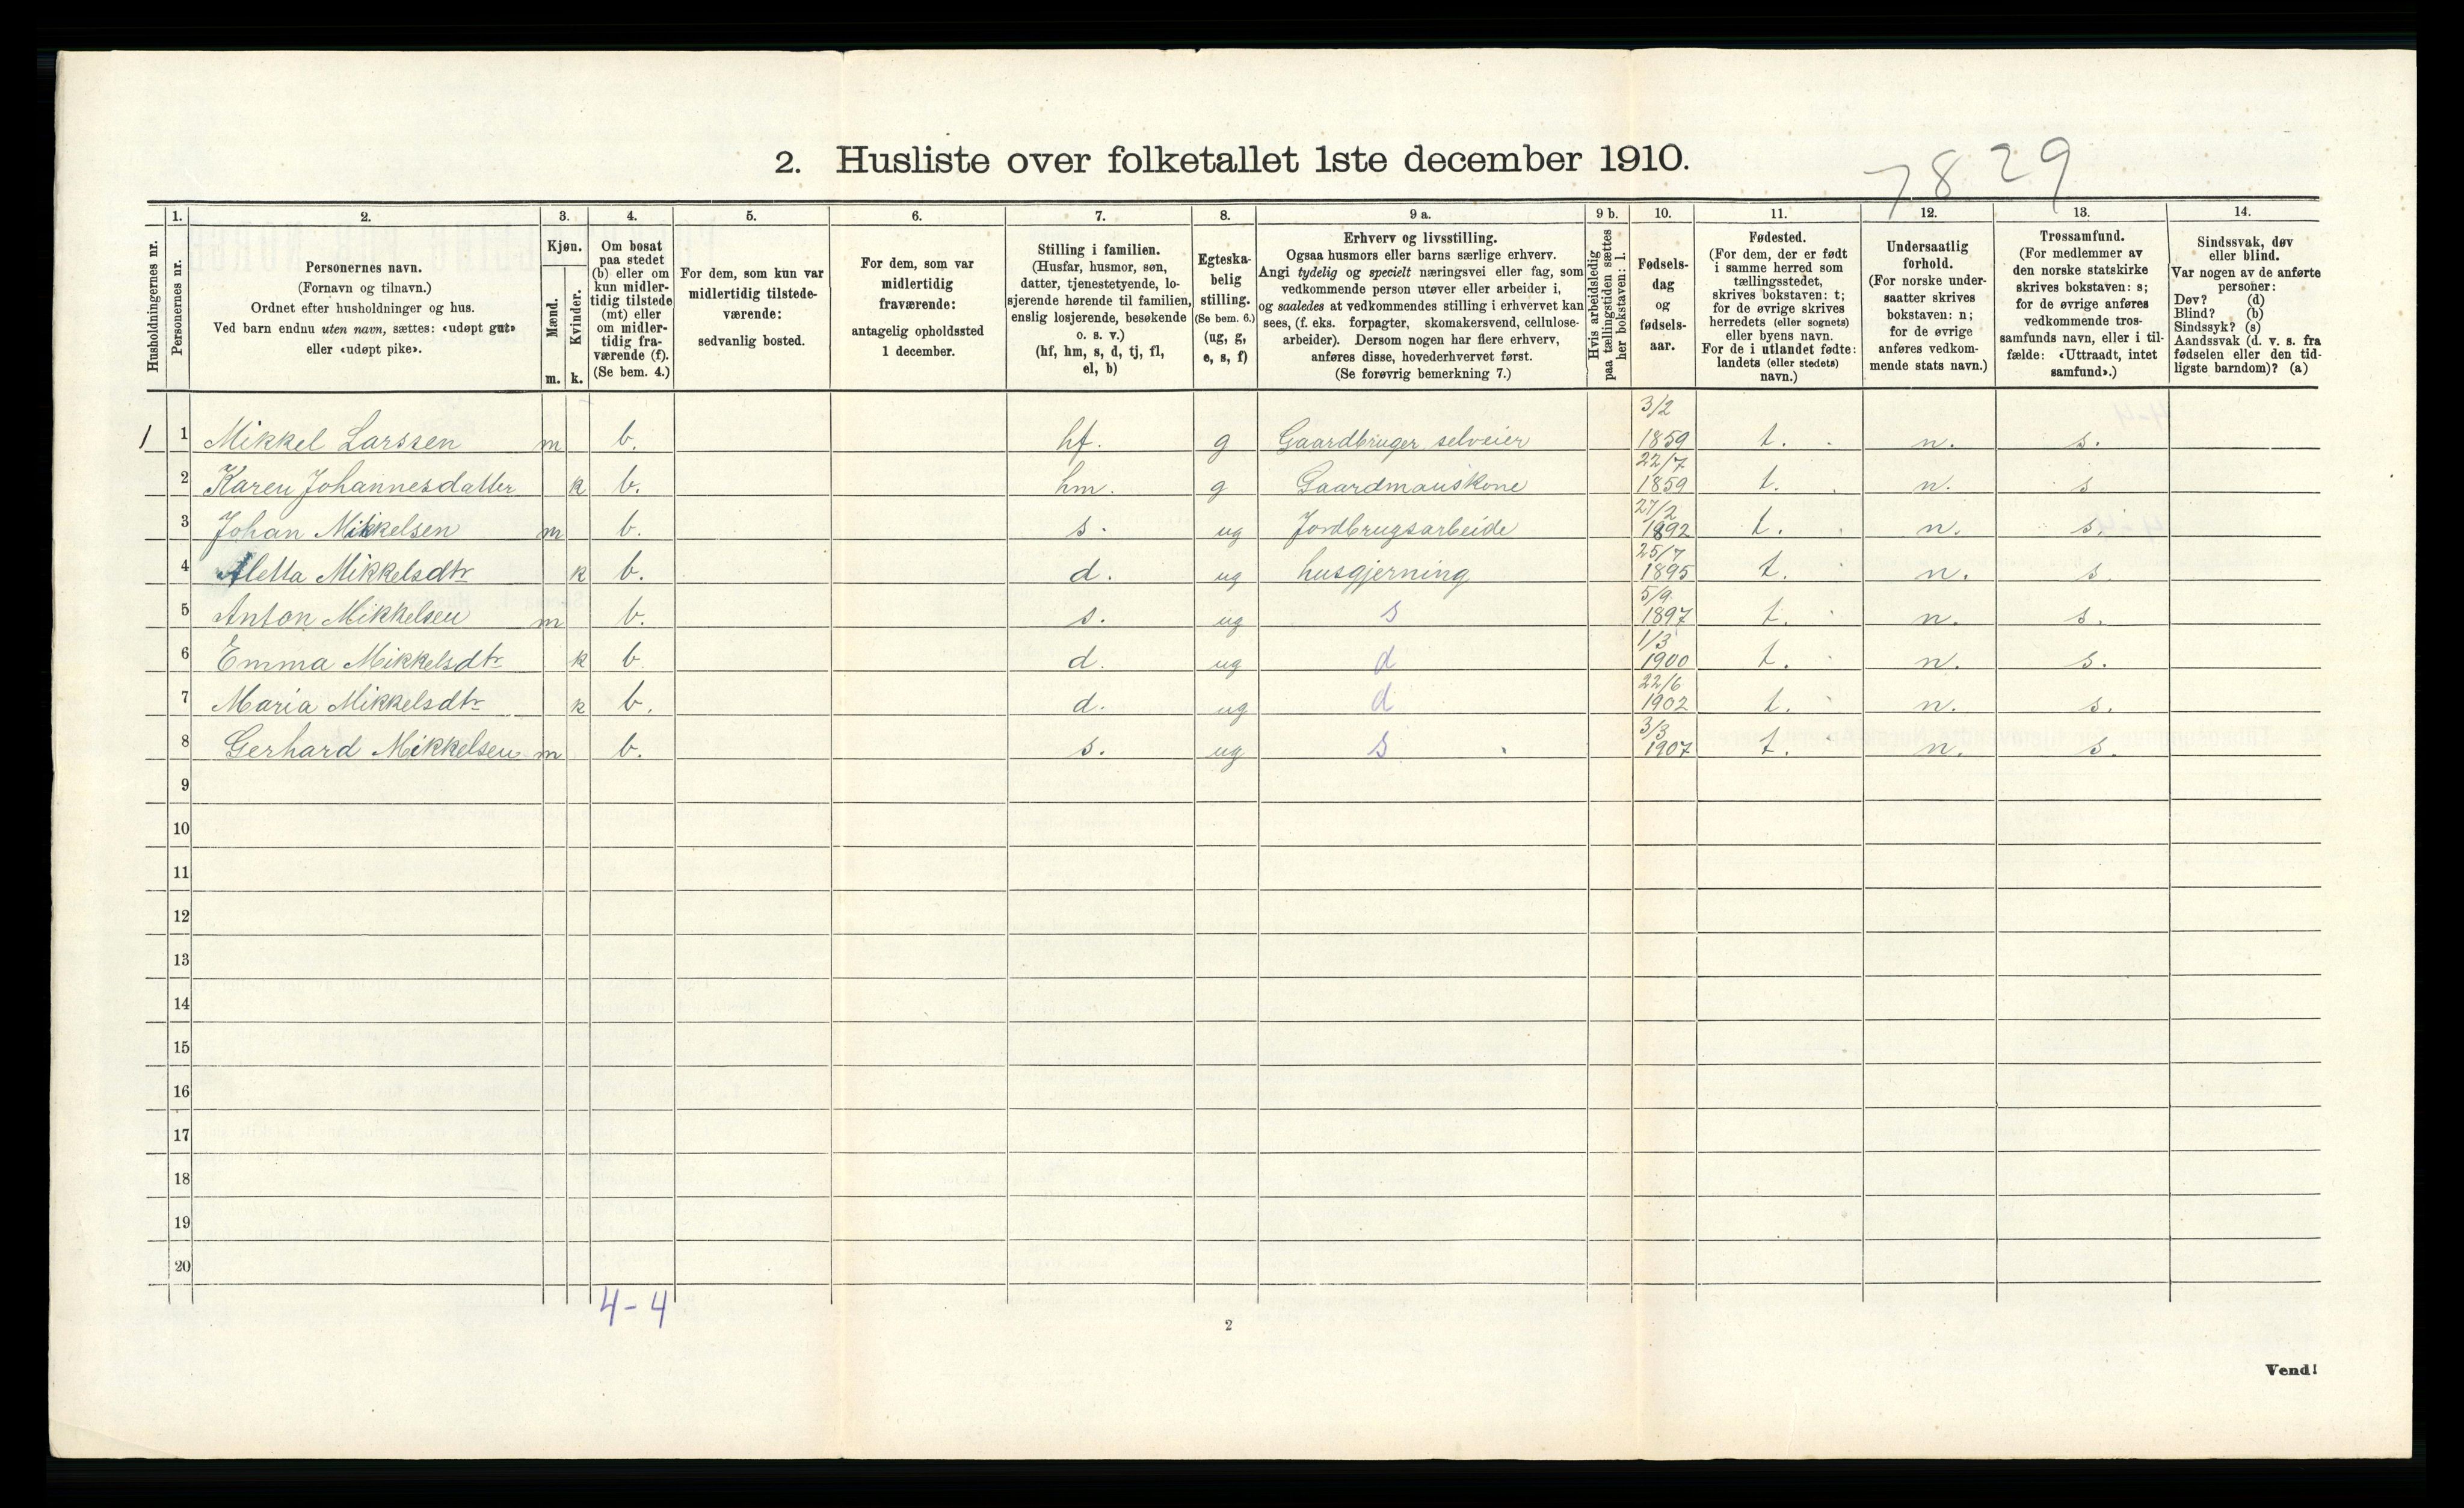 2. Husliste over folketallet 1ste december 1910.
7829
Husholdningernes nr.
1. Personernes nr.
2. Personernes navn.
(Fornavn og tilnavn.)
Ordnet efter husholdninger og hus.
Ved barn endnu uten navn, sættes: «udøpt gut»
eller «udøpt pike».
3. Kjøn.
Mænd. m.
Kvinder. k.
4. Om bosat
paa stedet
(b) eller om
kun midler-
tidig tilstede
(mt) eller
om midler-
tidig fra-
værende (f).
(Se bem. 4.)
5. For dem, som kun var
midlertidig tilstede-
værende:
sedvanlig bosted.
6. For dem, som var
midlertidig
fraværende:
antagelig opholdssted
1 december.
7. Stilling i familien.
(Husfar, husmor, søn,
datter, tjenestetyende, lo-
sjerende hørende til familien,
enslig losjerende, besøkende
o. s. v.)
(hf, hm, s, d, tj, fl,
el, b)
8. Egteska-
belig
stilling.
(Se bem. 6.)
(ug, g,
e, s, f)
9 a. Erhverv og livsstilling.
Ogsaa husmors eller barns særlige erhverv.
Angi tydelig og specielt næringsvei eller fag, som
vedkommende person utøver eller arbeider i,
og saaledes at vedkommendes stilling i erhvervet kan
sees, (f. eks. forpagter, skomakersvend, cellulose-
arbeider). Dersom nogen har flere erhverv,
anføres disse, hovederhvervet først.
(Se forøvrig bemerkning 7.)
9 b. Hvis arbeidsledig
paa tællingstiden sættes
her bokstaven: l.
10. Fødsels-
dag
og
fødsels-
aar.
11. Fødested.
(For dem, der er født
i samme herred som
tællingsstedet,
skrives bokstaven: t;
for de øvrige skrives
herredets (eller sognets)
eller byens navn.
For de i utlandet fødte:
landets (eller stedets)
navn.)
12. Undersaatlig
forhold.
(For norske under-
saatter skrives
bokstaven: n;
for de øvrige
anføres vedkom-
mende stats navn.)
13. Trossamfund.
(For medlemmer av
den norske statskirke
skrives bokstaven: s;
for de øvrige anføres
vedkommende tros-
samfunds navn, eller i til-
fælde: «Uttraadt, intet
samfund».)
14. Sindssvak, døv
eller blind.
Var nogen av de anførte
personer:
Døv? (d)
Blind? (b)
Sindssyk? (s)
Aandssvak (d. v. s. fra
fødselen eller den tid-
ligste barndom)? (a)
1 1 Mikkel Larssen m b. hf. g Gaardbruger selveier 3/2 1859 t. n. s.
2 Karen Johannesdatter k b. hm. g Gaardmanskone 22/7 1859 t. n. s
3 Johan Mikkelsen m b. s. ug Jordbrugsarbeide 27/2 1892 t. n. s.
4 Aletta Mikkelsdtr k b. d. ug husgjerning 25/7 1895 t. n. s.
5 Anton Mikkelsen m b. s. ug s 5/9 1897 t. n. s.
6 Emma Mikkelsdtr k b. d. ug d 1/3 1900 t. n. s.
7 Maria Mikkelsdtr k b. d. ug d 22/6 1902 t. n. s.
8 Gerhard Mikkelsen m b. s. ug s 3/3 1907 t. n. s.
9
10
11
12
13
14
15
16
17
18
19
20
4-4
2
Vend!